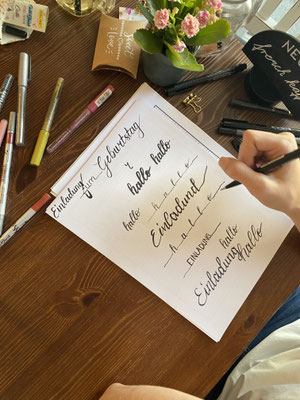 Einladung
zum Geburtstag
hallo hallo
hallo
hallo
Einladund
hallo
EINLADUNG
hallo
Einladung
hallo
NE